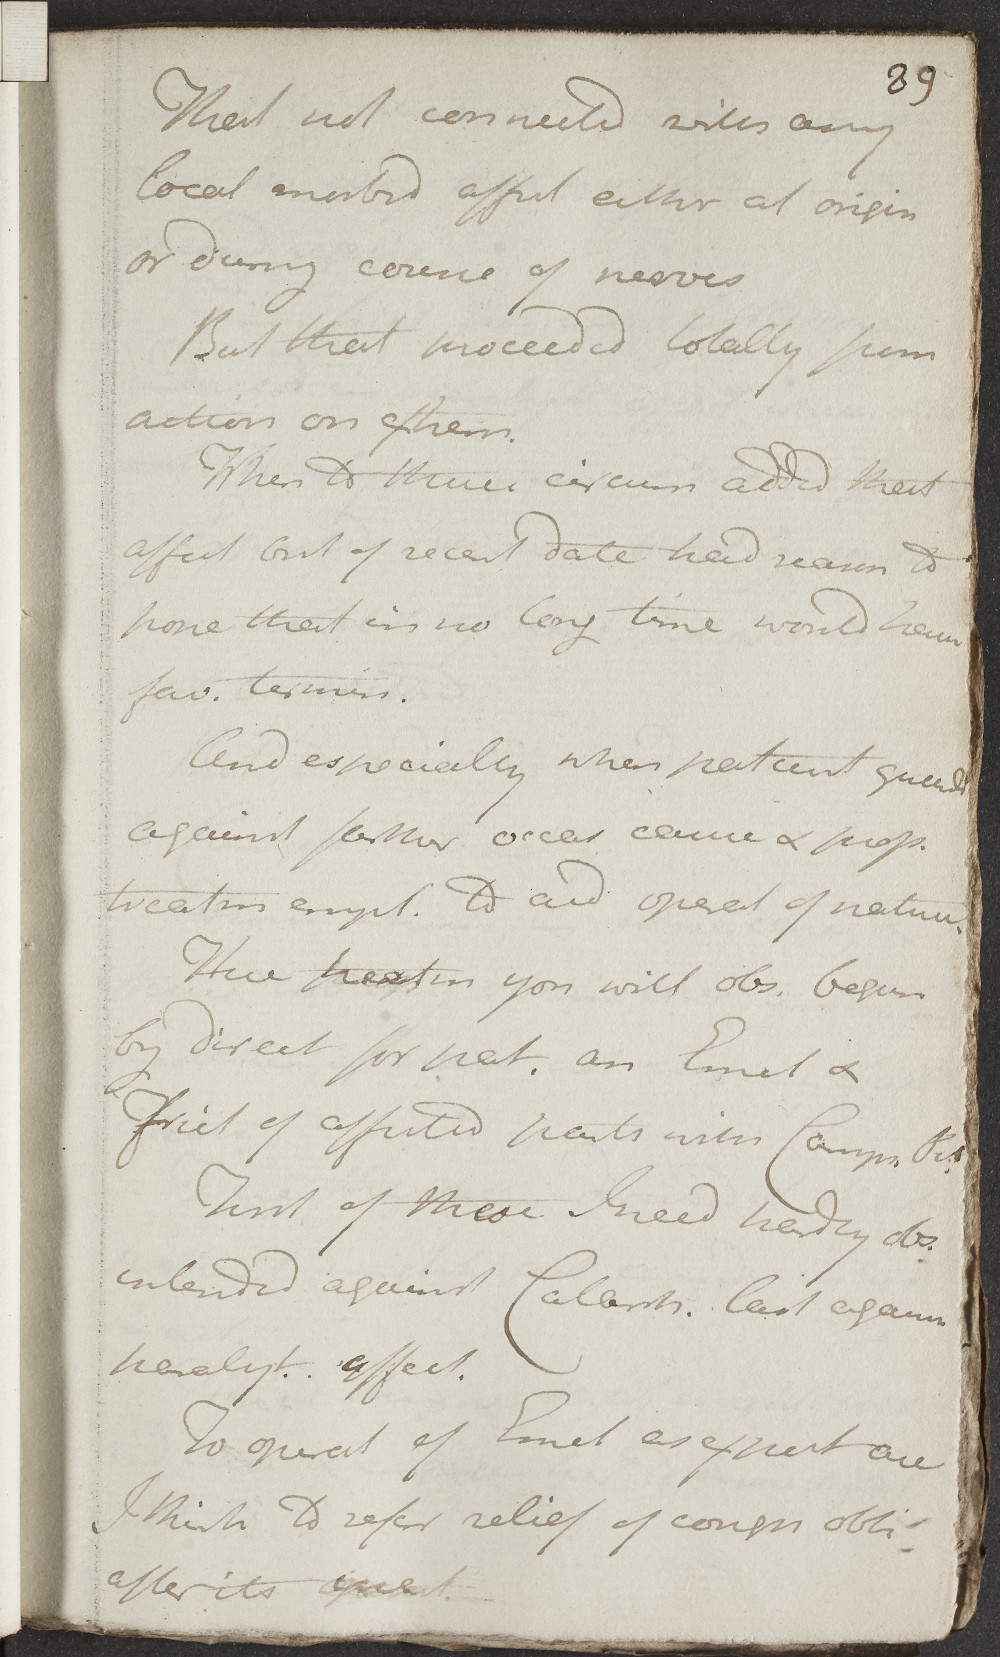 89
That not connected with any
local morbid affect either at origin
or during course of nerves
But that proceeded totally from
action on them.
When to these circum added that
affect but of recent date had reason to
hope that in no long time would have
fav. termin.
And especially when patient guards
against farther occas cause & prop.
treatm empl. to aid operat of nature.
Here treatm you will obs. begun
by direct for pat. an Emet &
Frict of affected parts with
First of these I need hardly obs.
intended against Catarrh. last against
paralyt. affect.
To operat of Emet as expect are
I think to refer relief of cough obt.
after its